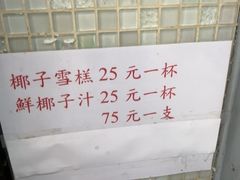 椰子雪糕 25 元一杯
鮮椰子汁 25 元一杯
75 元一支